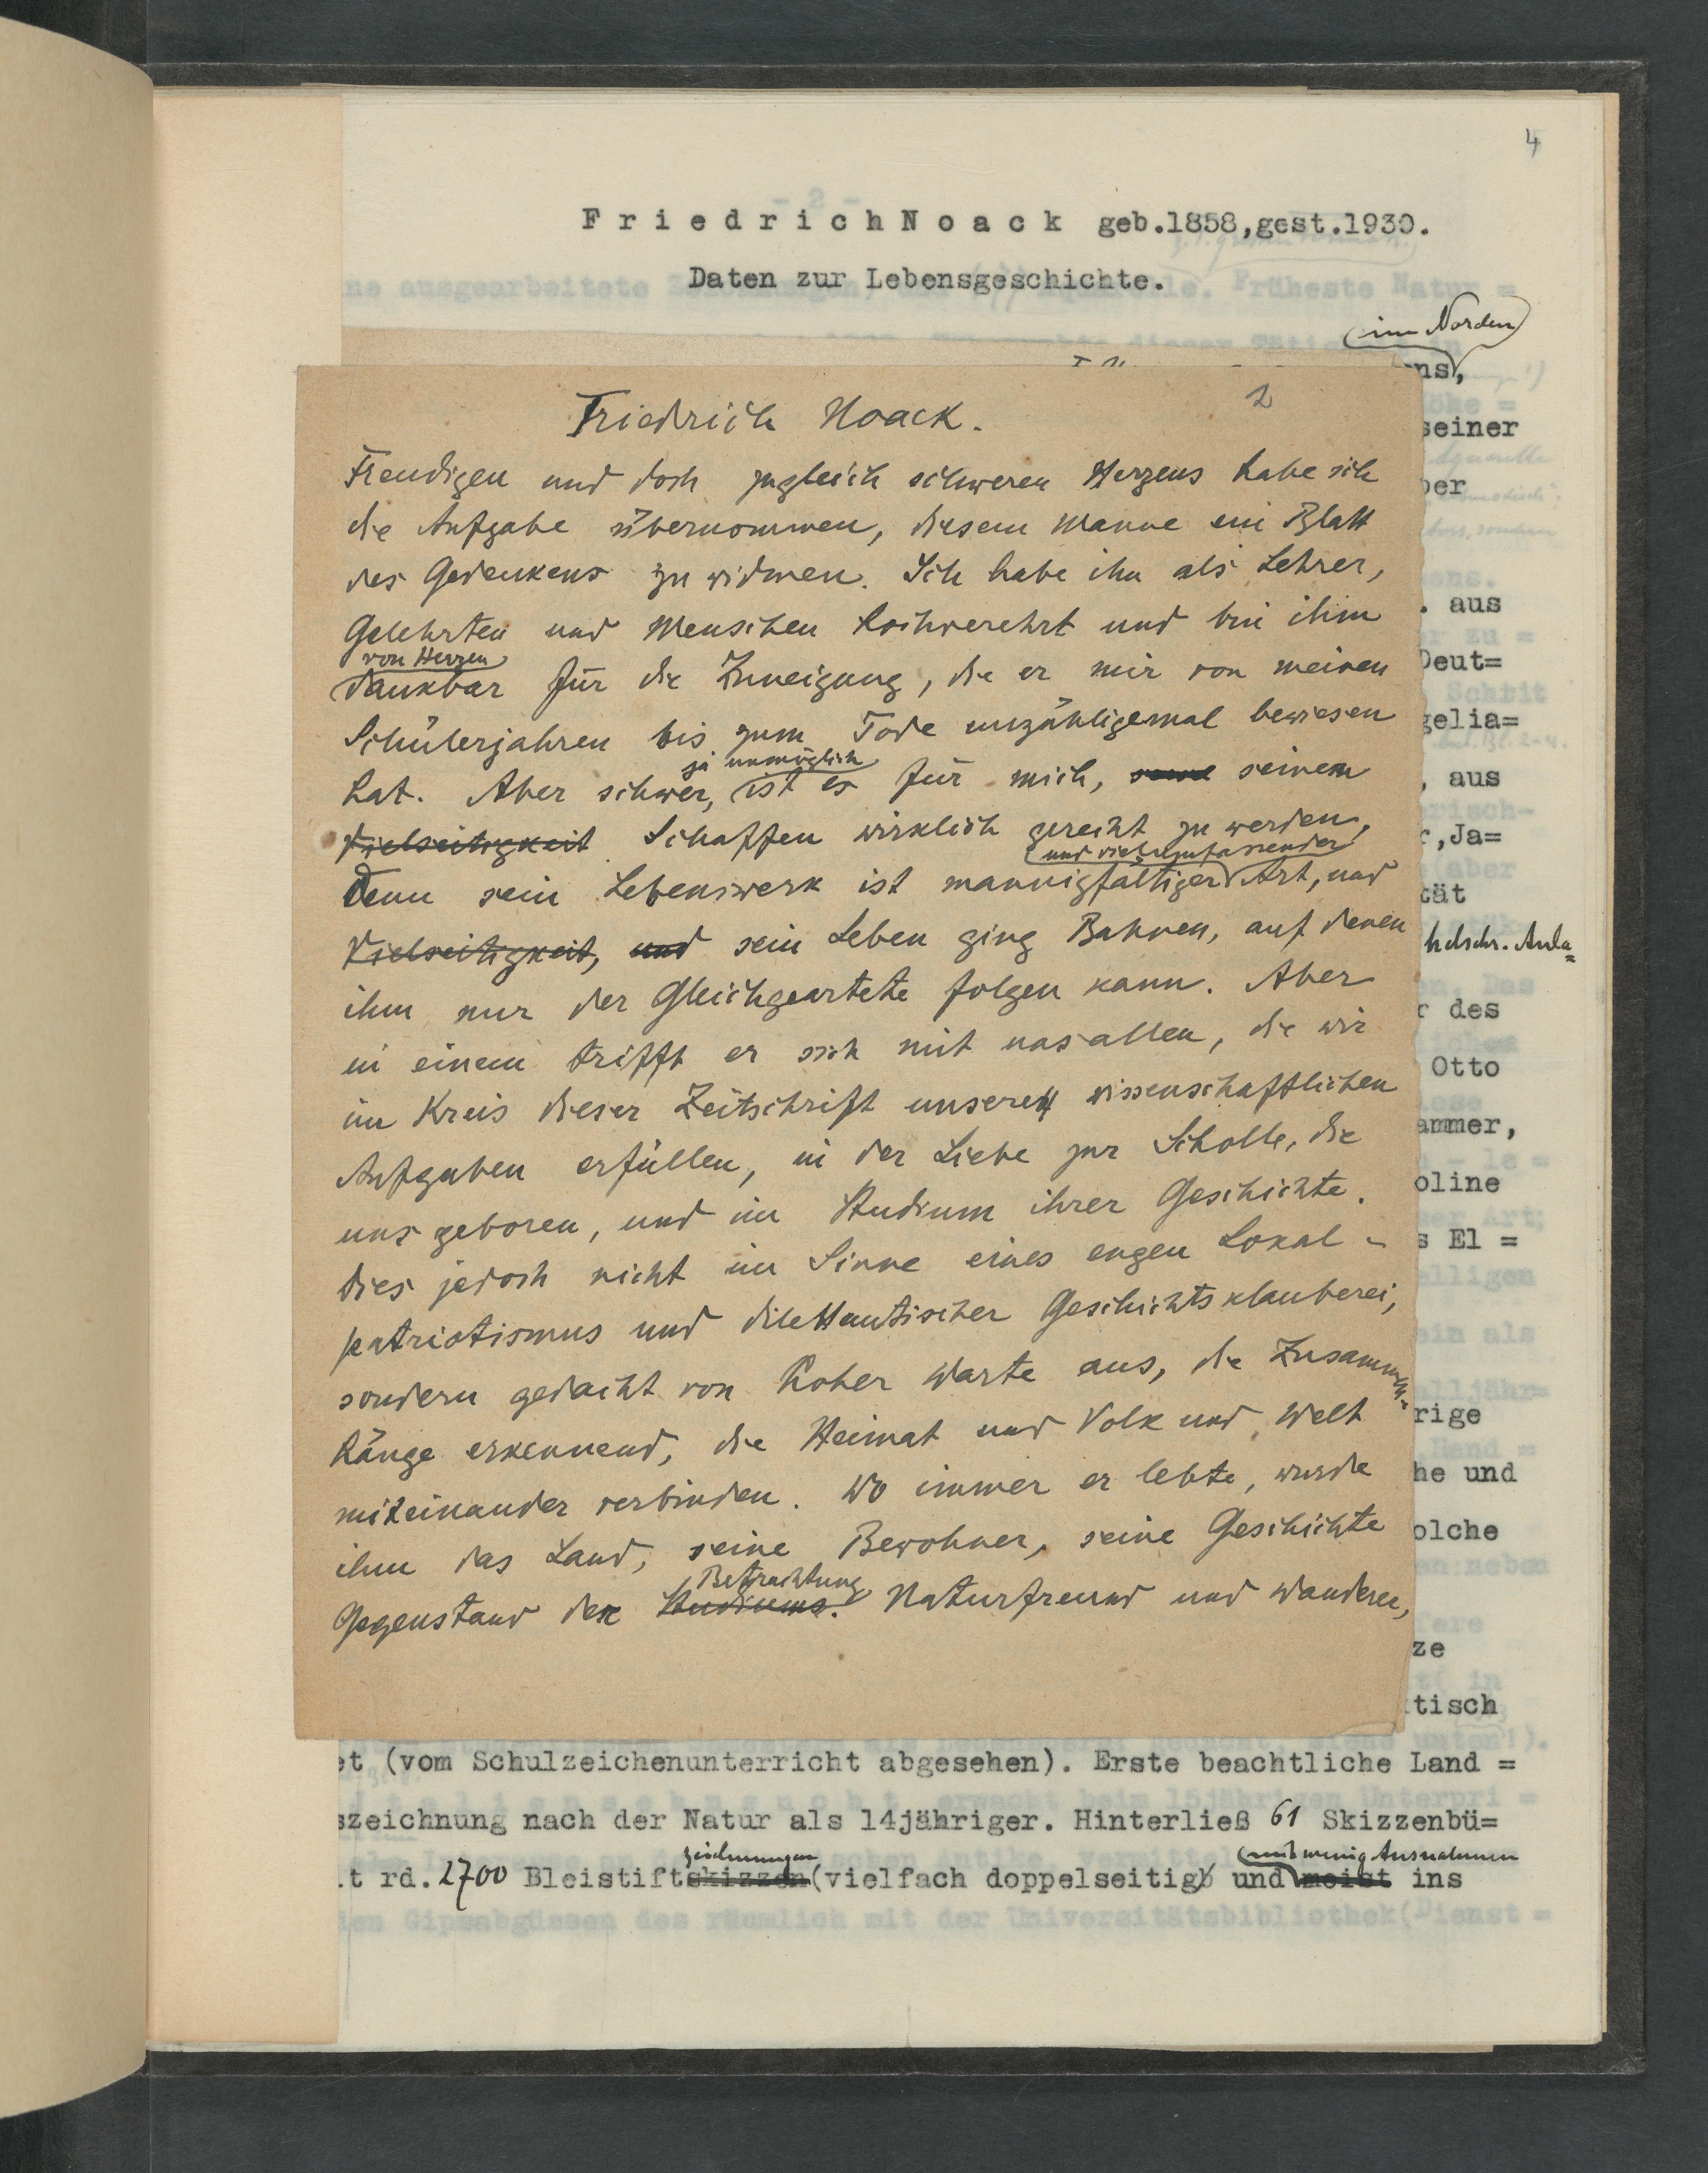 4
F r i e d r i c h N o a c k geb.1858,gest.1930.
Daten zur Lebensgeschichte.
im Norden
ens,
seiner
ber
. aus
Deut=
gelia=
, aus
r,Ja=
tät
hdschr. Anla=
r des
Otto
ammer,
oline
s El =
rige
he und
olche
ze
tisch
2
Friedrich Noack.
Freudigen und doch zugleich schweren Herzens habe ich
die Aufgabe übernommen, diesem Manne ein Blatt
des Gedenkens zu widmen. Ich habe ihn als Lehrer,
Gelehrten und Menschen hochverehrt und bin ihm
von Herzen
dankbar für die Zuneigung, die er mir von meinen
Schülerjahren bis zum Tode unzähligemal bewiesen
ja unmöglich
hat. Aber schwer, ist es für mich, seine seinem
Vielseitigkeit Schaffen wirklich gerecht zu werden,
und vielumfassender
Denn sein Lebenswerk ist mannigfaltiger Art, und
Vielseitigkeit, und sein Leben ging Bahnen, auf denen
ihm nur der Gleichgeartete folgen kann. Aber
in einem trifft er sich mit uns allen, die wir
im Kreis dieser Zeitschrift unseren wissenschaftlichen
Aufgaben erfüllen, in der Liebe zur Scholle, die
uns geboren, und im Studium ihrer Geschichte.
Dies jedoch nicht im Sinne eines engen Lokal-
patriotismus und dilettantischer Geschichtsklauberei,
sondern gedacht von hoher Warte aus, die Zusammen=
hänge erkennend, die Heimat und Volk und Welt
miteinander verbinden. Wo immer er lebte, wurde
ihm das Land, seine Bewohner, seine Geschichte
Betrachtung
Gegenstand der Studiums. Naturfreund und Wanderer,
et (vom Schulzeichenunterricht abgesehen). Erste beachtliche Land =
szeichnung nach der Natur als 14jähriger. Hinterließ 61 Skizzenbü=
zeichnungen mit wenig Ausnahmen
t rd. 2700 Bleistiftskizzen(vielfach doppelseitig) und meist ins